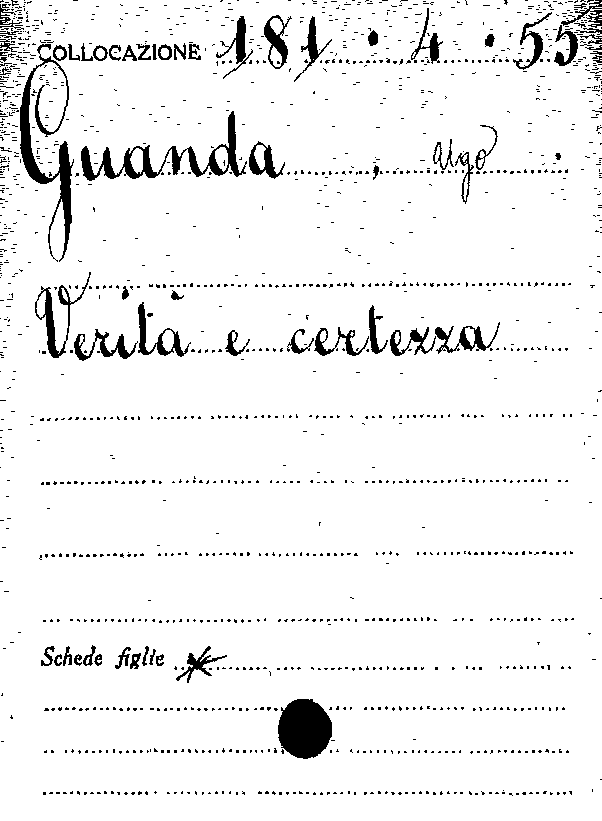 COLLOCAZIONE 181 . 4 . 55
Guanda , Ugo .
Verità e certezza
Schede figlie